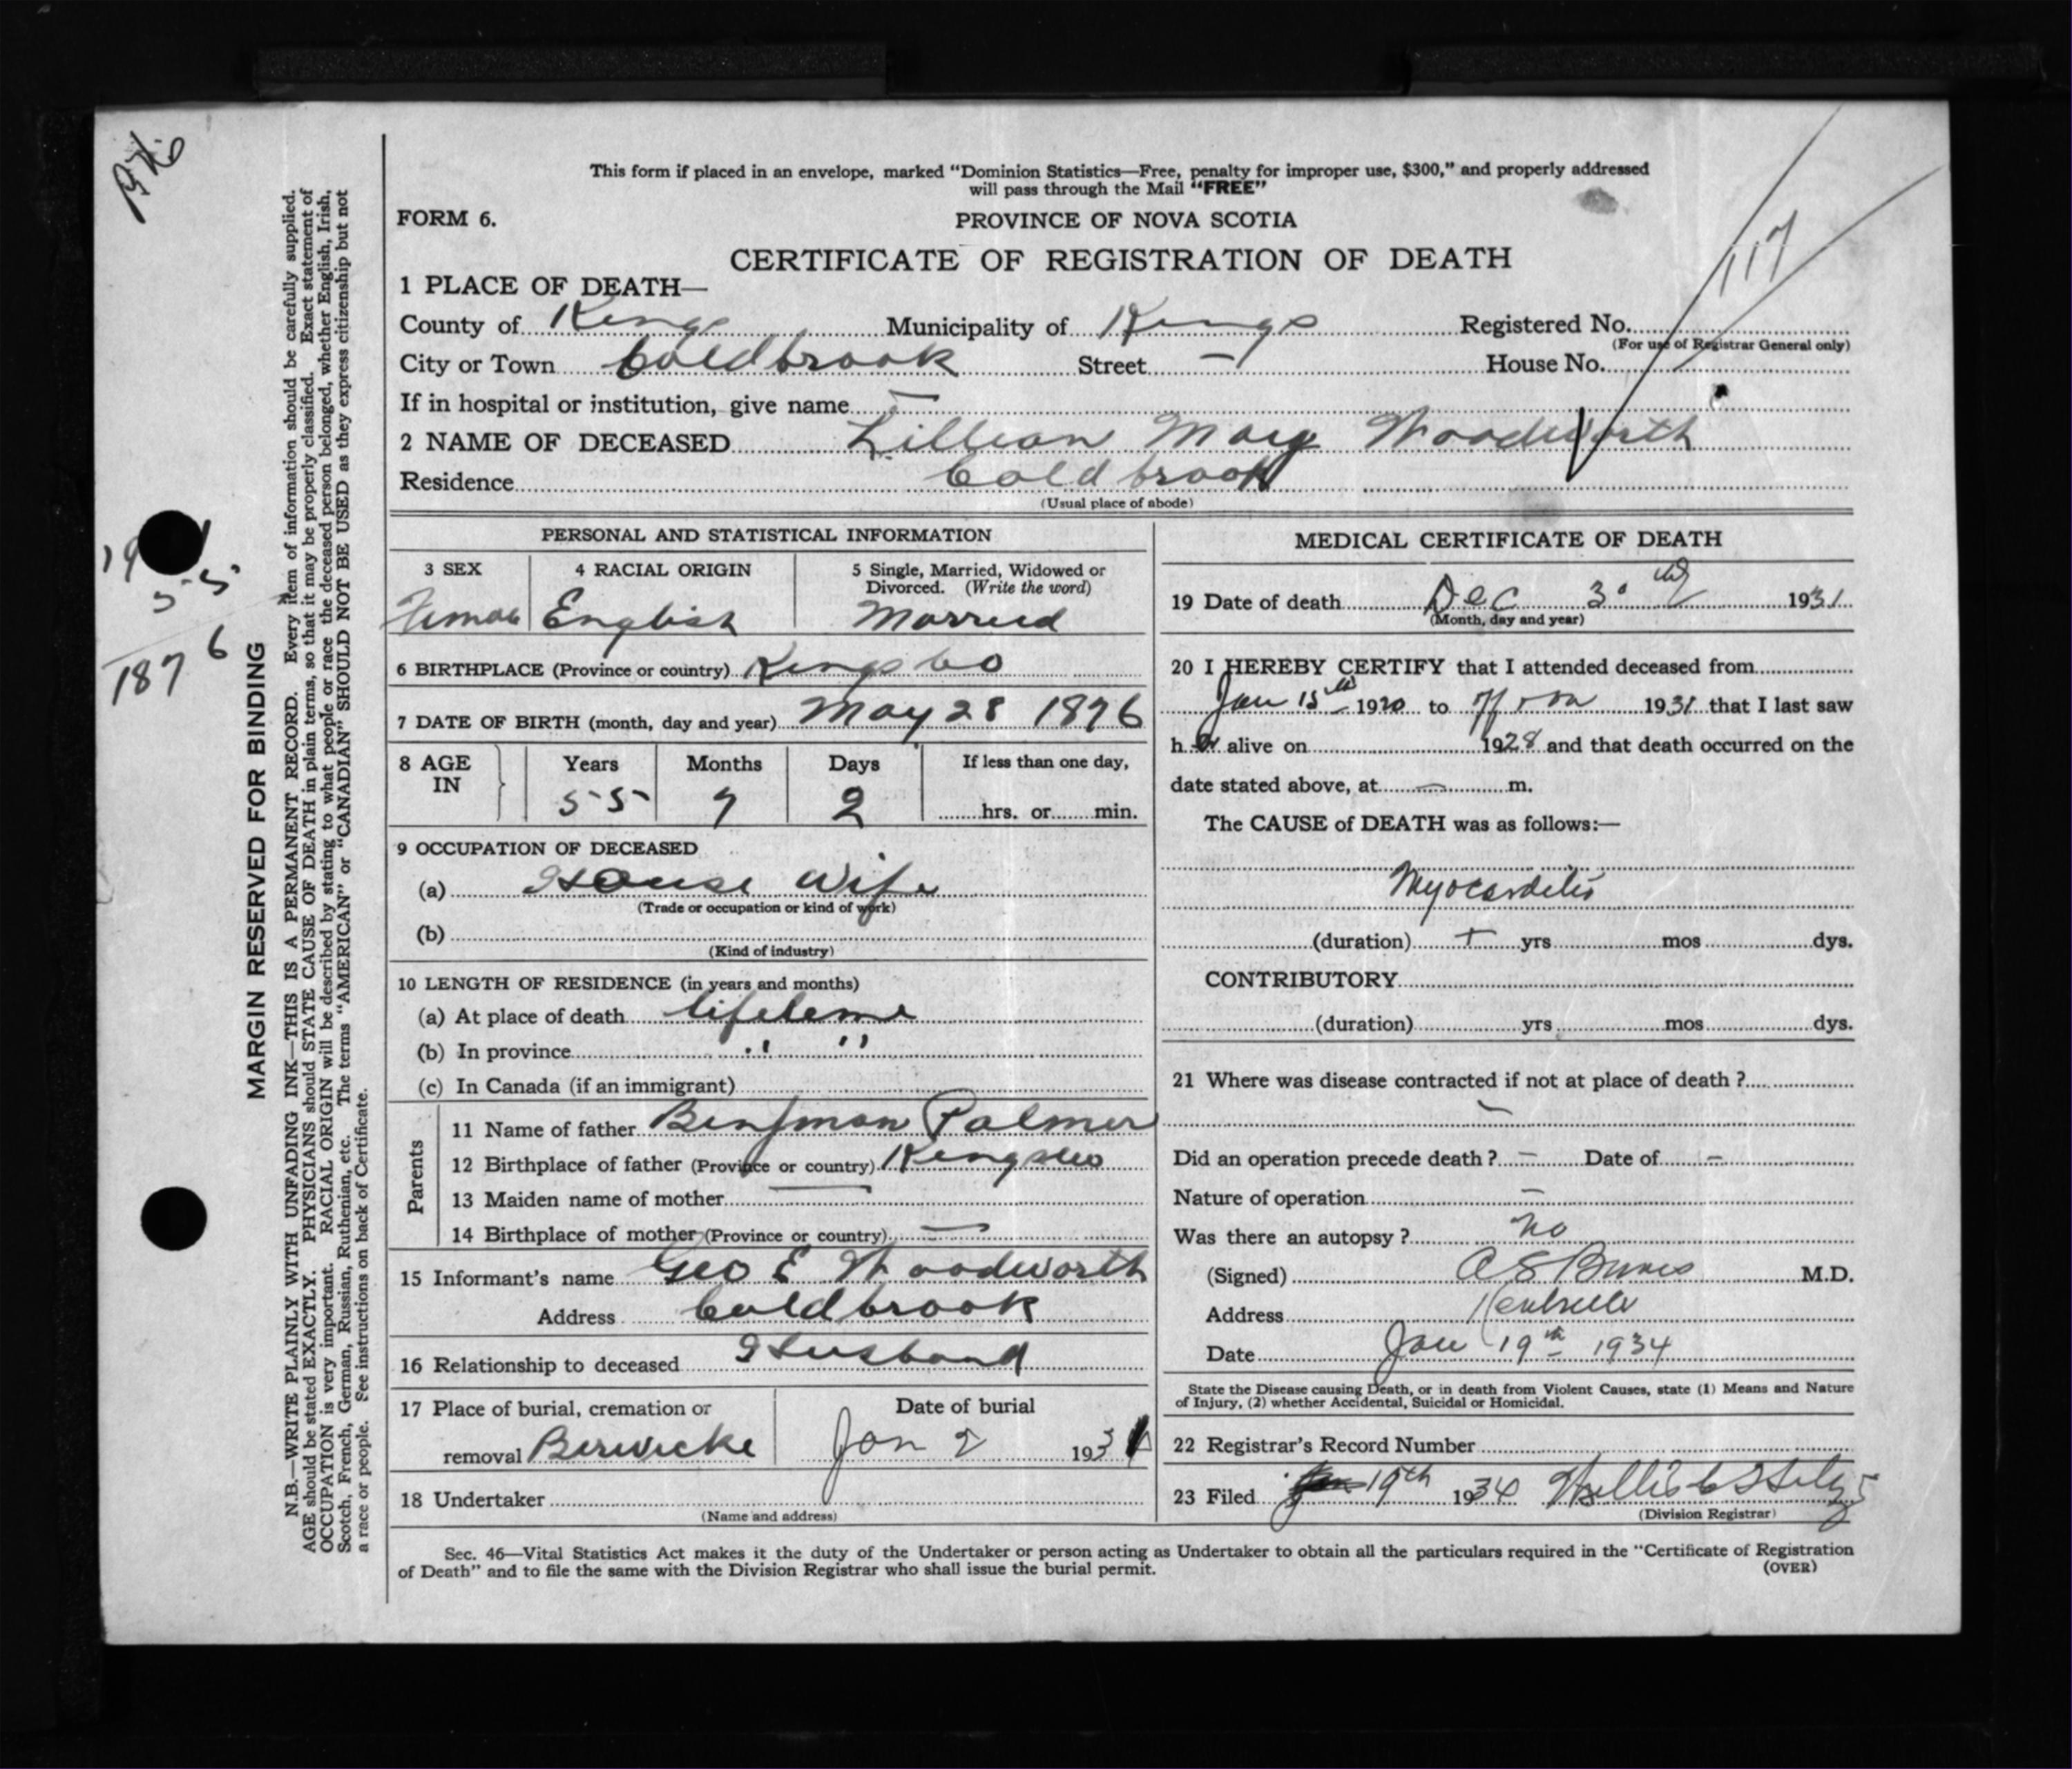 This form if placed in an envelope, marked "Dominion Statistics—Free, penalty for improper use, $300," and properly addressed
will pass through the Mail "FREE"
FORM 6.
PROVINCE OF NOVA SCOTIA
CERTIFICATE OF REGISTRATION OF DEATH
117
1 PLACE OF DEATH—
County of Kings Municipality of Kings Registered No.
(For use of Registrar General only)
City or Town Coldbrook Street — House No.
If in hospital or institution, give name —
2 NAME OF DECEASED Lillian Mary Woodworth
Residence Coldbrook
(Usual place of abode)
PERSONAL AND STATISTICAL INFORMATION
3 SEX
Female
4 RACIAL ORIGIN
English
5 Single, Married, Widowed or
Divorced. (Write the word)
Married
6 BIRTHPLACE (Province or country) Kings Co
7 DATE OF BIRTH (month, day and year) May 28 1876
8 AGE IN
Years Months Days If less than one day,
55 7 2 hrs. or min.
9 OCCUPATION OF DECEASED
(a) House Wife
(Trade or occupation or kind of work)
(b)
(Kind of industry)
10 LENGTH OF RESIDENCE (in years and months)
(a) At place of death lifetime
(b) In province " "
(c) In Canada (if an immigrant)
Parents
11 Name of father Benjman Palmer
12 Birthplace of father (Province or country) Kings Co
13 Maiden name of mother —
14 Birthplace of mother (Province or country) —
15 Informant's name Geo E Woodworth
Address Coldbrook
16 Relationship to deceased Husband
17 Place of burial, cremation or
removal Berwicke
Date of burial
Jan 2 193
18 Undertaker
(Name and address)
MEDICAL CERTIFICATE OF DEATH
19 Date of death Dec 30 1931
(Month, day and year)
20 I HEREBY CERTIFY that I attended deceased from
Jan 15th 1920 to 1931 that I last saw
h er alive on 1928 and that death occurred on the
date stated above, at — m.
The CAUSE of DEATH was as follows:—
Myocarditis
(duration) + yrs mos dys.
CONTRIBUTORY
(duration) yrs mos dys.
21 Where was disease contracted if not at place of death ?
—
Did an operation precede death ? — Date of —
Nature of operation —
Was there an autopsy ? No
(Signed) A S Burns M.D.
Address Kentville
Date Jan 19th 1934
State the Disease causing Death, or in death from Violent Causes, state (1) Means and Nature
of Injury, (2) whether Accidental, Suicidal or Homicidal.
22 Registrar's Record Number
23 Filed 19th 1934 Willis C
(Division Registrar)
Sec. 46—Vital Statistics Act makes it the duty of the Undertaker or person acting as Undertaker to obtain all the particulars required in the "Certificate of Registration
of Death" and to file the same with the Division Registrar who shall issue the burial permit.
(OVER)
MARGIN RESERVED FOR BINDING
N.B.—WRITE PLAINLY WITH UNFADING INK—THIS IS A PERMANENT RECORD. Every item of information should be carefully supplied.
AGE should be stated EXACTLY. PHYSICIANS should STATE CAUSE OF DEATH in plain terms, so that it may be properly classified. Exact statement of
OCCUPATION is very important. RACIAL ORIGIN will be described by stating to what people or race the deceased person belonged, whether English, Irish,
Scotch, French, German, Russian, Ruthenian, etc. The terms "AMERICAN" or "CANADIAN" SHOULD NOT BE USED as they express citizenship but not
a race or people. See instructions on back of Certificate.
55
1876